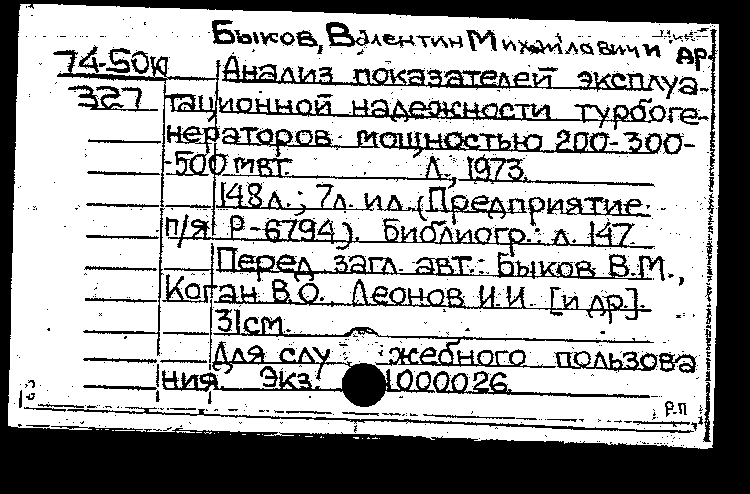 Быков, Валентин Михайлович и др.
74-50ю
327
Анализ показателей эксплуа-
тационной надежности турбоге-
нераторов мощностью 200-300-
-500 мвт. Л., 1973.
148 л.; 7 л. ил. (Предприятие
п/я Р-6794). Библиогр.: л. 147
Перед загл. авт.: Быков В.М.,
Коган В.О. Леонов И.И. [и др].
31 см.
Для слу жебного пользова
ния. Экз. 1000026.
Р.П